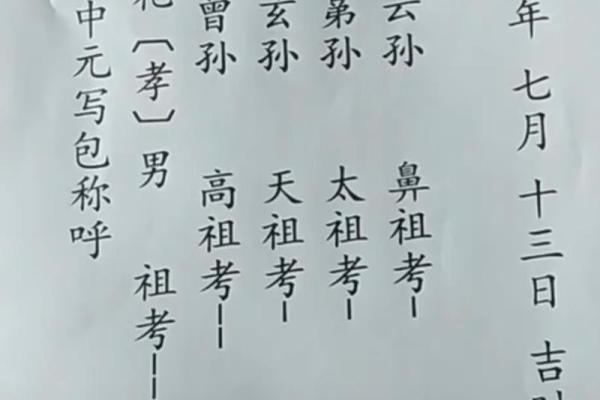 年 七月 十三日 吉
云孙 鼻祖考
孙 太祖考
玄孙 天祖考
曾孙 高祖考
〔孝〕男 祖考
中元写包称呼